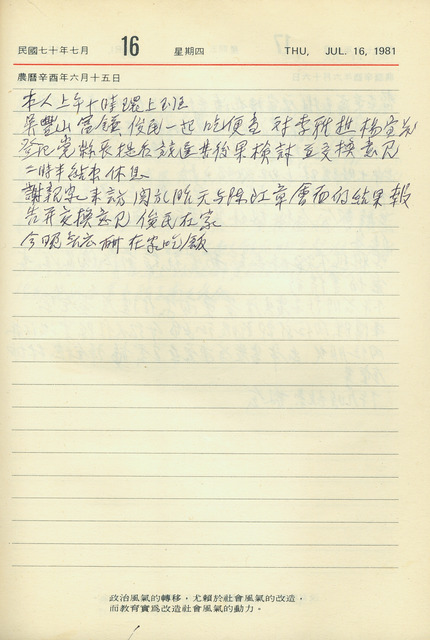 民國七十年七月 16 星期四 THU, JUL. 16, 1981
農曆辛酉年六月十五日
本人上午十時 上班
吳豐山 富鎮 俊民一起吃便當 對李雅樵 楊寶發
登記黨縣長提名競選 後果檢討並交換意見
二時半結束休息
謝親家來訪 關於昨天与陳 章會面的結果報
告并交換意見 俊民在家
今晚 在家吃飯
政治風氣的轉移，尤賴於社會風氣的改造，
而教育實爲改造社會風氣的動力。